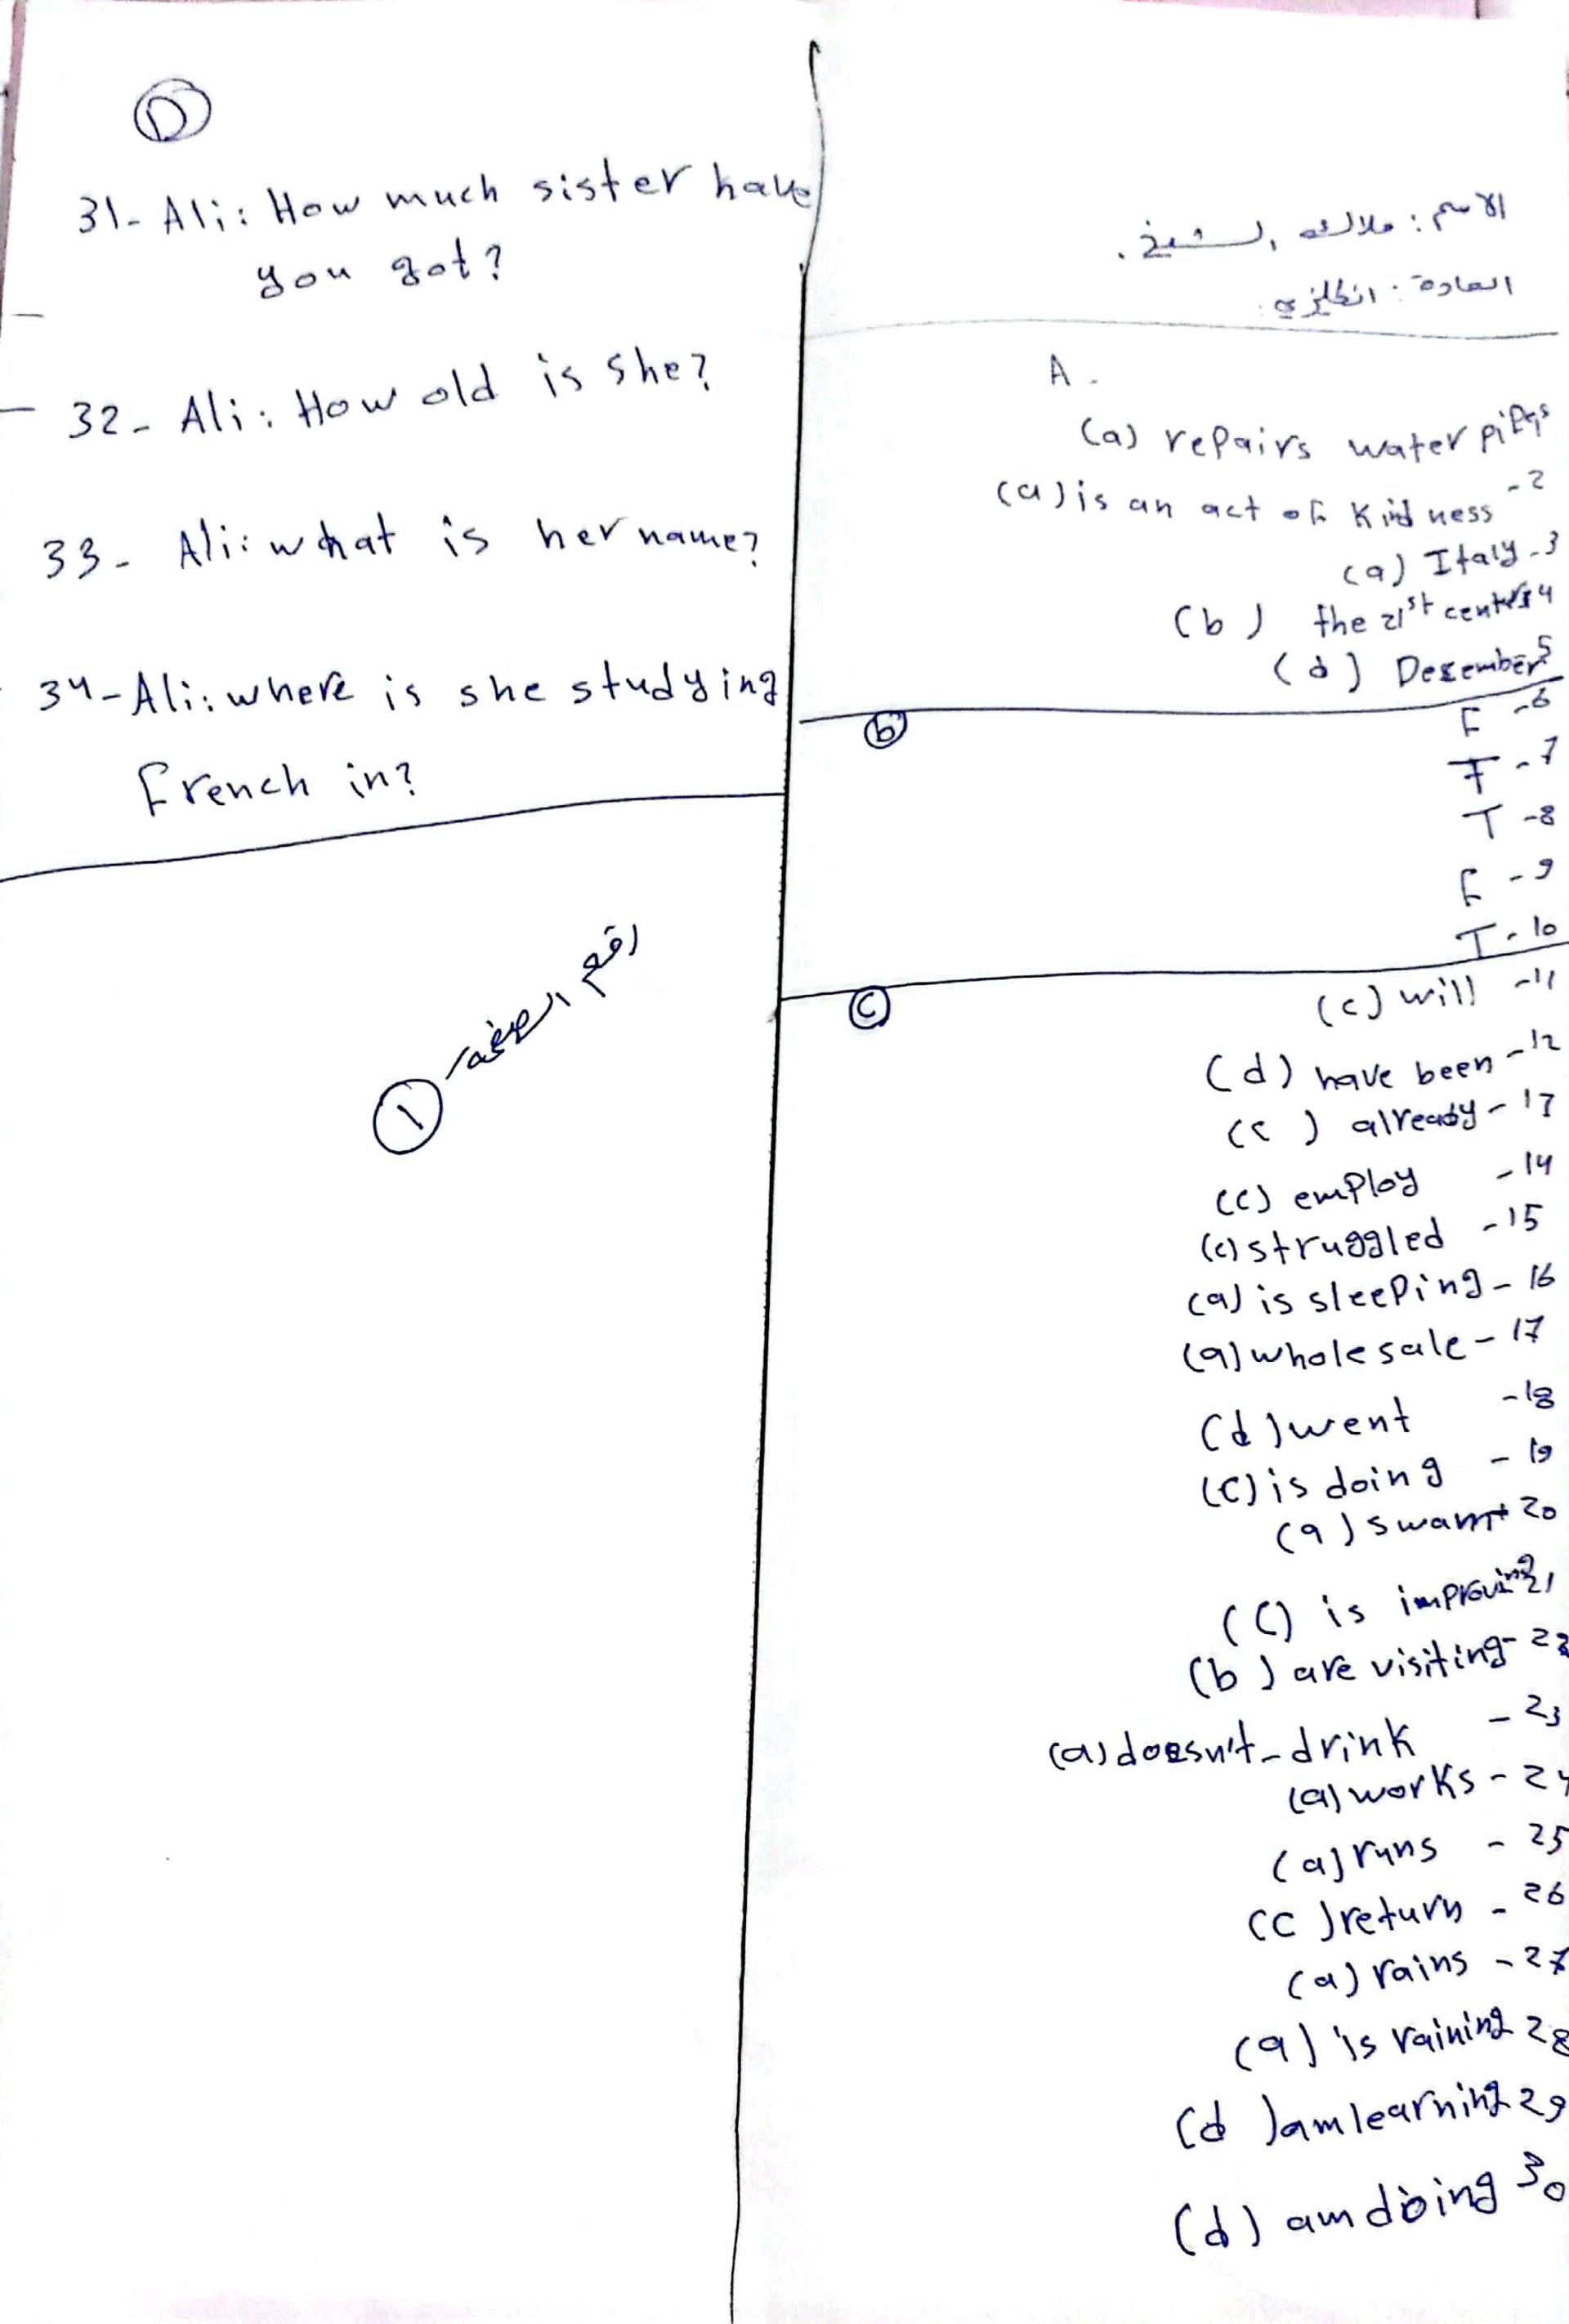 الاسم : ملاك الشيخ .
المادة : انكليزي .
A -
(a) repairs water pipes
(a) is an act of Kindness -2
(a) Italy -3
(b) the 21st century 4
(d) Desember 5
(b)
F -6
F -7
T -8
F -9
T -10
(C)
(c) will -11
(d) have been -12
(c) already - 13
(c) employ -14
(c) struggled -15
(a) is sleeping - 16
(a) wholesale - 17
(d) went -18
(C) is doing - 19
(a) swam 20
(C) is improving 21
(b) are visiting - 22
(a) doesn't - drink - 23
(a) works - 24
(a) runs - 25
(c) return - 26
(a) rains - 27
(a) is raining 28
(d) am learning 29
(d) am doing 30
D
31- Ali: How much sister have
you got?
32- Ali: How old is she?
33- Ali: what is her name?
34- Ali: where is she studying
French in?
رقم الصفحة
1